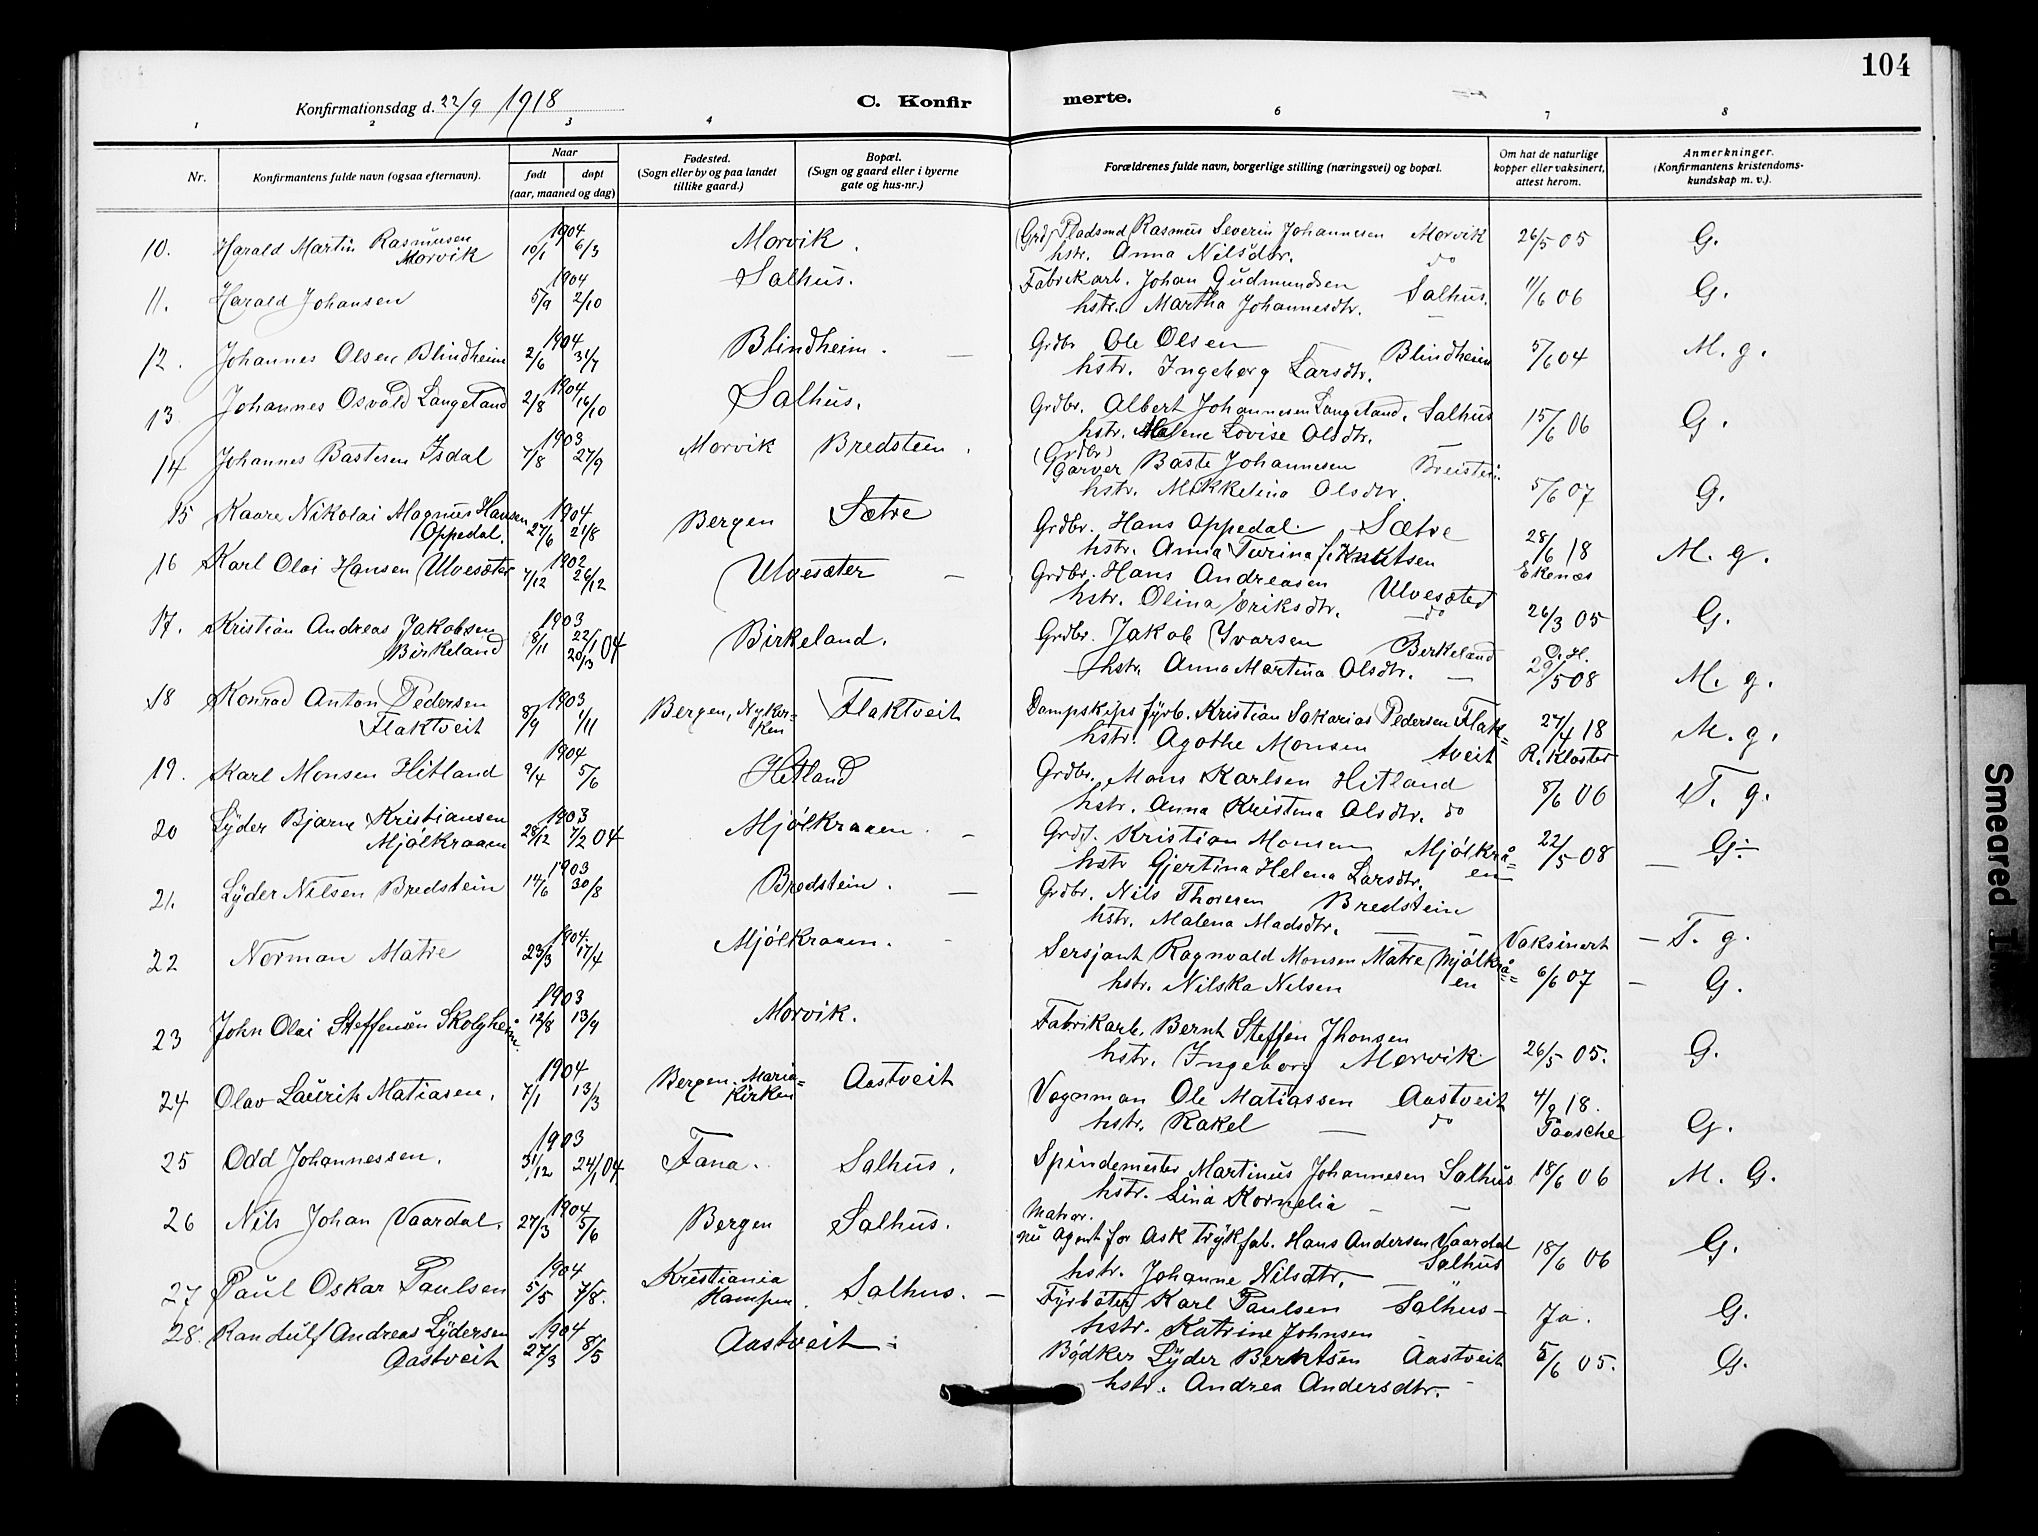 104
Konfirmationsdag d. 22/9 1918
C. Konfir merte.
1 2 3 4 6 7 8
Nr.
Konfirmantens fulde navn (ogsaa efternavn).
Naar
født døpt
(aar, maaned og dag)
Fødested.
(Sogn eller by og paa landet
tillike gaard.)
Bopæl.
(Sogn og gaard eller i byerne
gate og hus-nr.)
Forældrenes fulde navn, borgerlige stilling (næringsvei) og bopæl.
Om hat de naturlige
kopper eller vaksinert,
attest herom.
Anmerkninger.
(Konfirmantens kristendoms-
kundskap m. v.).
10. Harald Martin Rasmusen Morvik 1904 10/1 6/3 Morvik. (Grd) Pladsmd Rasmus Severin Johannesen Morvik 26/5 05 G.
hstr. Anna Nilsdtr. do
11. Harald Johansen 1904 5/9 2/10 Salhus. Fabrikarb. Johan Gudmundsen Salhus. 11/6 06 G.
hstr. Martha Johannesdtr. —
12. Johannes Olsen Blindheim 1904 2/6 31/7 Blindheim. — Grdbr Ole Olsen Blindheim 5/6 04 M. g.
hstr. Ingeborg Larsdtr.
13 Johannes Osvald Langeland 1904 2/8 16/10 Salhus. Grdbr. Albert Johannesen Langeland. Salhus 15/6 06 G.
hstr. Malene Lovise Olsdtr. —
14 Johannes Bastesen Isdal 1903 7/8 27/9 Morvik Bredsteen. (Grdbr) Garver Baste Johannesen Breistein. 5/6 07 G.
hstr. Mikkelina Olsdtr.
15 Kaare Nikolai Magnus Hansen Oppedal. 1904 27/6 21/8 Bergen Sætre Grdbr. Hans Oppedal. Sætre 28/6 18 Ekenæs M. g.
hstr. Anna Turina f. Knutsen
16 Karl Olai Hansen Ulvesæter 1902 7/12 26/12 Ulvesæter — Grdbr. Hans Andreasen Ulvesæted 26/3 05 G.
hstr. Olina Eriksdtr. do
17. Kristian Andreas Jakobsen Birkeland 1903 8/11 22/1 04 20/3 Birkeland. Grdbr. Jakob Ivarsen Berkeland O. H. 20/5 08 M. g.
hstr. Anna Martina Olsdtr. —
18 Konrad Anton Pedersen Flaktveit 1903 8/9 1/11 Bergen, Nykir-ken Flaktveit Dampskips fyrb. Kristian Sakarias Pedersen Flak-tveit 27/4 18 R. Kloster M. g.
hstr. Agathe Monsen
19. Karl Monsen Hitland 1904 9/4 5/6 Hitland Grdbr. Mons Karlsen Hitland 8/6 06 T. g.
hstr. Anna Kristina Olsdtr. do
20 Lyder Bjarne Kristiansen Mjölkraaen 1903 28/12 7/2 04 Mjölkraaen. — Grdf. Kristian Monsen Mjölkrå-en 22/5 08 — G.
hstr Gjertina Helena Larsdtr.
21. Lyder Nilsen Bredstein 1903 14/6 30/8 Bredstein. — Grdbr. Nils Thoresen Bredstein Vaksinert — T. g.
hstr. Malena Madsdtr. — —
22 Norman Matre 1904 23/3 17/4 Mjölkraaen. - Sersjant Ragnvald Monsen Matre Mjölkrå-en 6/6 07 — G.
hstr. Nilska Nilsen
23 John Olai Steffensen Skolgheim. 1903 12/8 13/9 Morvik. Fabrikarb. Bernt Steffen Jhonsen 26/5 05. G.
hstr. Ingeborg Morvik
24 Olav Laurits Matiasen. 1904 7/1 13/3 Bergen. Maria-kirken Aastveit Vognman Ole Matiassen Aastveit 4/9 18. Paasche G.
hstr. Rakel — do
25 Odd Johannessen. 1903 31/12 24/1 04 Fana. Salhus. Spindemester Martinus Johannesen Salhus 18/6 06 M. G.
hstr. Lina Kornelia — —
26 Nils Johan Vaardal. 1904 27/3 5/6 Bergen Salhus. Matror. nu Agent for Ask trykfab. Hans Andersen Vaardal Salhus 18/6 06 G.
hstr. Johanne Nilsdtr.
27 Paul Oskar Paulsen 1904 5/5 7/8. Kristiania Kampen. Salhus. — Fyrböter Karl Paulsen Salhus — Ja. G.
hstr. Katrine Johnsen
28. Randulf Andreas Lydersen Aastveit 1904 27/3 8/5 Aastveit Bödker Lyder Berntsen Aastveit 5/6 05. G.
hstr. Andrea Andersdtr. -
Smeared